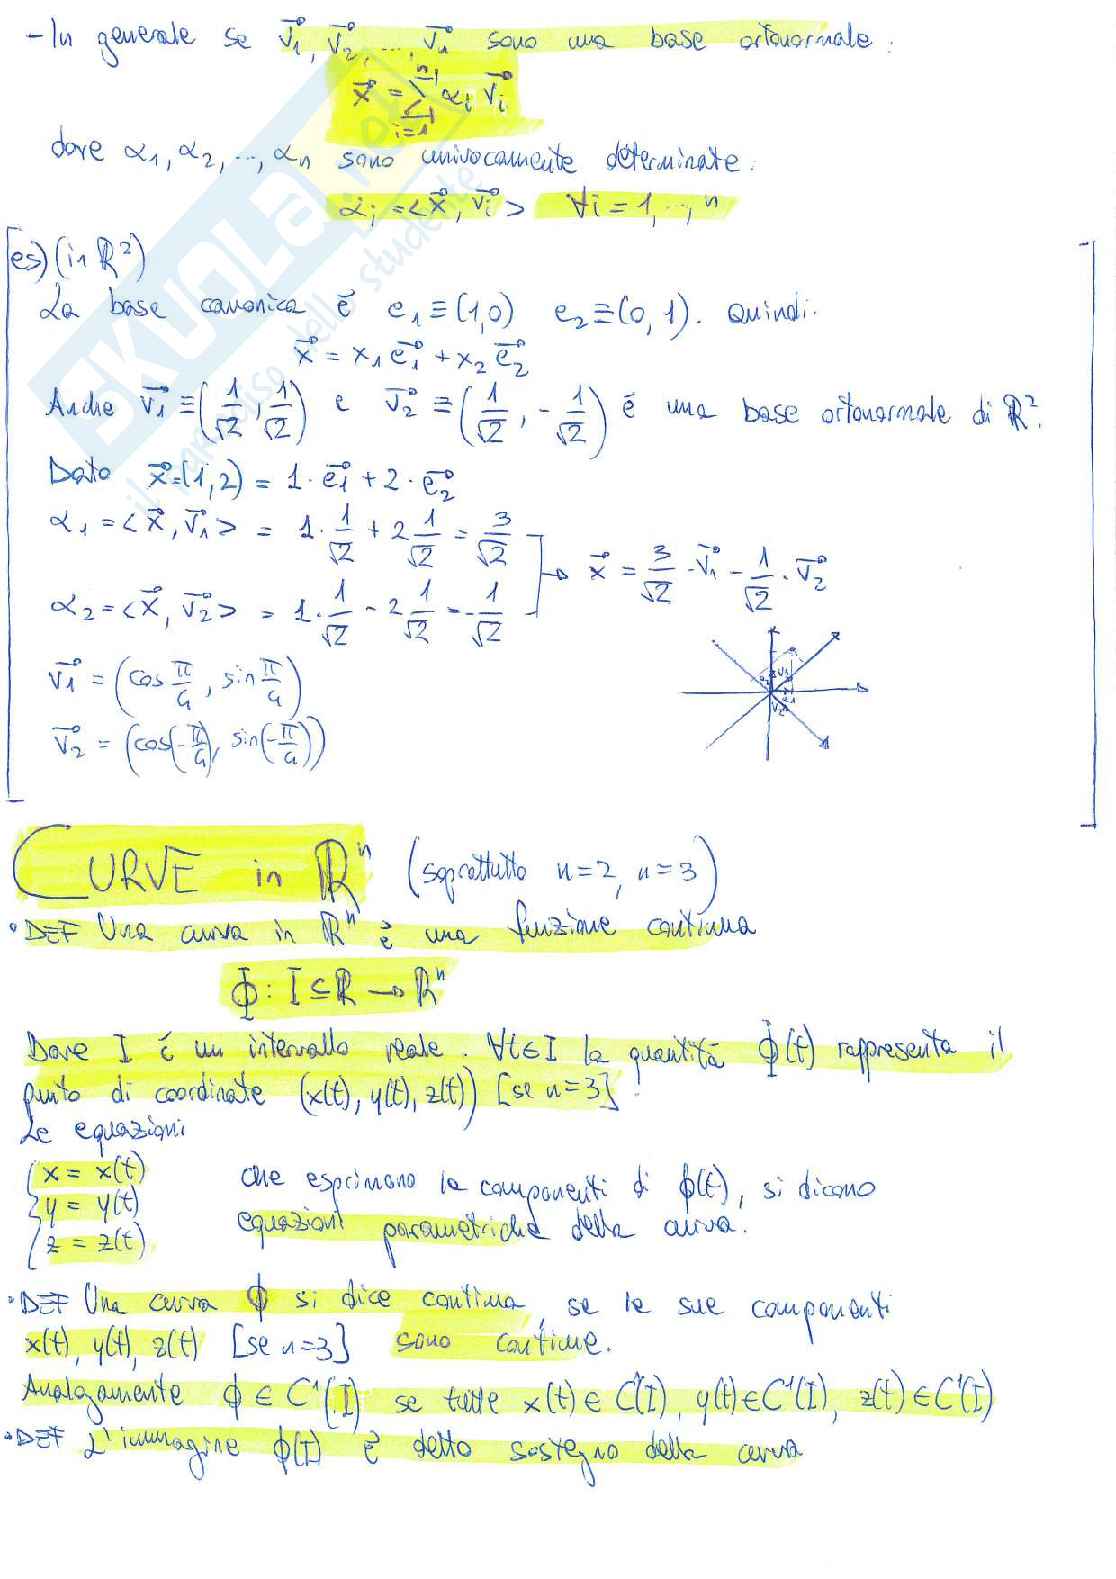 - In generale se v⃗1, v⃗2, ..., v⃗n sono una base ortonormale:
x⃗ = Σ_{i=1}^{n} αi v⃗i
dove α1, α2, ..., αn sono univocamente determinate:
αi = <x⃗, v⃗i> ∀i = 1, .., n
es) (in ℝ²)
La base canonica è e1 ≡ (1,0) e2 ≡ (0,1). Quindi:
x⃗ = x1 e⃗1 + x2 e⃗2
Anche v⃗1 ≡ (1/√2, 1/√2) e v⃗2 ≡ (1/√2, -1/√2) è una base ortonormale di ℝ².
Dato x⃗=(1,2) = 1·e⃗1 + 2·e⃗2
α1 = <x⃗, v⃗1> = 1·1/√2 + 2 1/√2 = 3/√2
→ x⃗ = 3/√2 · v⃗1 - 1/√2 · v⃗2
α2 = <x⃗, v⃗2> = 1·1/√2 - 2 1/√2 = -1/√2
v⃗1 = (cos π/4, sin π/4)
v⃗2 = (cos(-π/4), sin(-π/4))
CURVE in ℝⁿ (soprattutto n=2, n=3)
• DEF Una curva in ℝⁿ è una funzione continua
ϕ: I ⊆ ℝ → ℝⁿ
Dove I è un intervallo reale. ∀t∈I la quantità ϕ(t) rappresenta il
punto di coordinate (x(t), y(t), z(t)) [se n=3]!
Le equazioni
{ x = x(t)
y = y(t)
z = z(t)
che esprimono le componenti di ϕ(t), si dicono
equazioni parametriche della curva.
• DEF Una curva ϕ si dice continua, se le sue componenti
x(t), y(t), z(t) [se n=3] sono continue.
Analogamente ϕ ∈ C¹(I) se tutte x(t) ∈ C¹(I), y(t) ∈ C¹(I), z(t) ∈ C¹(I)
• DEF L'immagine ϕ(I) è detto sostegno della curva
SKUOLA.net
il paradiso dello studente